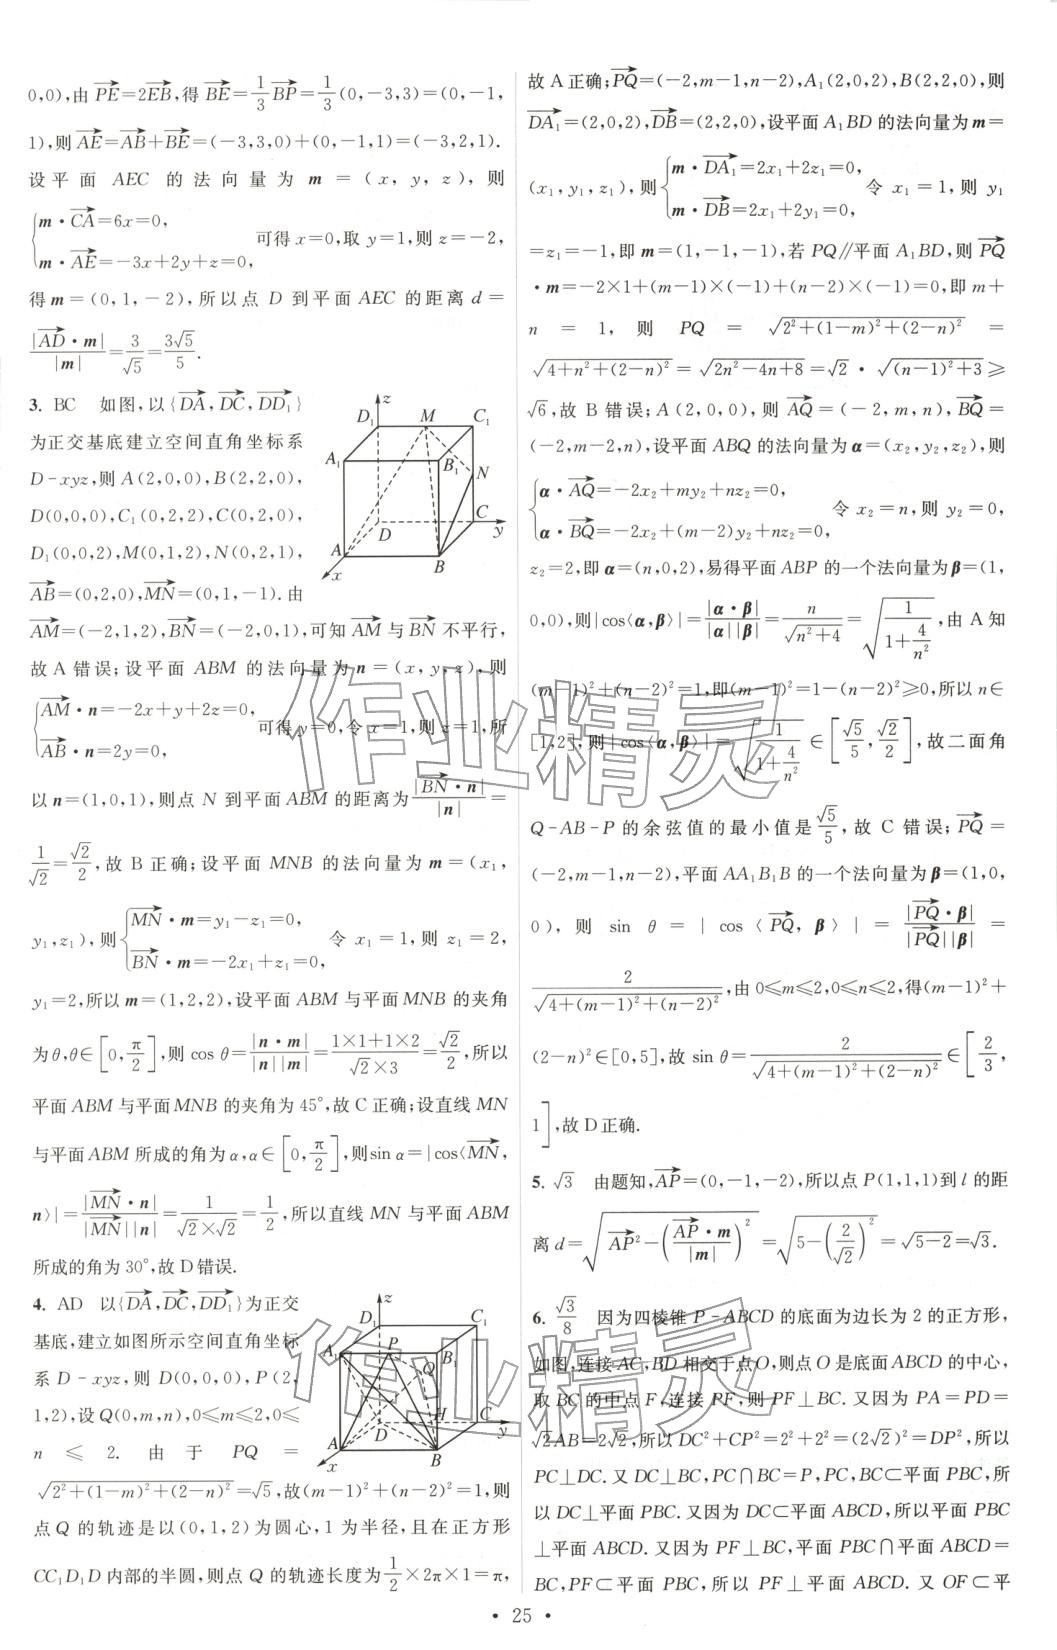 0,0),由 PE=2EB,得 BE=1/3 BP=1/3(0,-3,3)=(0,-1,
1),则 AE=AB+BE=(-3,3,0)+(0,-1,1)=(-3,2,1).
设平面 AEC 的法向量为 m=(x,y,z),则
{m·CA=6x=0,
m·AE=-3x+2y+z=0, 可得 x=0,取 y=1,则 z=-2,
得 m=(0,1,-2),所以点 D 到平面 AEC 的距离 d=
|AD·m|/|m|=3/√5=3√5/5.
3. BC 如图,以{DA,DC,DD₁}
为正交基底建立空间直角坐标系
D-xyz,则 A(2,0,0),B(2,2,0),
D(0,0,0),C₁(0,2,2),C(0,2,0),
D₁(0,0,2),M(0,1,2),N(0,2,1),
AB=(0,2,0),MN=(0,1,-1).由
z
D₁ M C₁
A₁ B₁ N
D C y
A B
x
AM=(-2,1,2),BN=(-2,0,1),可知 AM 与 BN 不平行,
故 A 错误;设平面 ABM 的法向量为 n=(x,y,z),则
{AM·n=-2x+y+2z=0,
AB·n=2y=0, 可得 y=0,令 x=1,则 z=1,所
以 n=(1,0,1),则点 N 到平面 ABM 的距离为|BN·n|/|n|=
1/√2=√2/2,故 B 正确;设平面 MNB 的法向量为 m=(x₁,
y₁,z₁),则{MN·m=y₁-z₁=0,
BN·m=-2x₁+z₁=0, 令 x₁=1,则 z₁=2,
y₁=2,所以 m=(1,2,2),设平面 ABM 与平面 MNB 的夹角
为θ,θ∈[0,π/2],则 cos θ=|n·m|/|n||m|=(1×1+1×2)/(√2×3)=√2/2,所以
平面 ABM 与平面 MNB 的夹角为 45°,故 C 正确;设直线 MN
与平面 ABM 所成的角为α,α∈[0,π/2],则 sin α=|cos⟨MN,
n⟩|=|MN·n|/|MN||n|=1/(√2×√2)=1/2,所以直线 MN 与平面 ABM
所成的角为 30°,故 D 错误.
4. AD 以{DA,DC,DD₁}为正交
基底,建立如图所示空间直角坐标
系 D-xyz,则 D(0,0,0),P(2,
1,2),设 Q(0,m,n),0≤m≤2,0≤
n≤2.由于 PQ=
z
D₁ C₁
A₁ P B₁
Q
H
D C y
A B
x
√(2²+(1-m)²+(2-n)²)=√5,故(m-1)²+(n-2)²=1,则
点 Q 的轨迹是以(0,1,2)为圆心,1 为半径,且在正方形
CC₁D₁D 内部的半圆,则点 Q 的轨迹长度为1/2×2π×1=π,
故 A 正确;PQ=(-2,m-1,n-2),A₁(2,0,2),B(2,2,0),则
DA₁=(2,0,2),DB=(2,2,0),设平面 A₁BD 的法向量为 m=
(x₁,y₁,z₁),则{m·DA₁=2x₁+2z₁=0,
m·DB=2x₁+2y₁=0, 令 x₁=1,则 y₁
=z₁=-1,即 m=(1,-1,-1),若 PQ∥平面 A₁BD,则 PQ
·m=-2×1+(m-1)×(-1)+(n-2)×(-1)=0,即 m+
n=1,则 PQ=√(2²+(1-m)²+(2-n)²)=
√(4+n²+(2-n)²)=√(2n²-4n+8)=√2·√((n-1)²+3)≥
√6,故 B 错误;A(2,0,0),则 AQ=(-2,m,n),BQ=
(-2,m-2,n),设平面 ABQ 的法向量为 α=(x₂,y₂,z₂),则
{α·AQ=-2x₂+my₂+nz₂=0,
α·BQ=-2x₂+(m-2)y₂+nz₂=0, 令 x₂=n,则 y₂=0,
z₂=2,即 α=(n,0,2),易得平面 ABP 的一个法向量为 β=(1,
0,0),则|cos⟨α,β⟩|=|α·β|/|α||β|=n/√(n²+4)=√(1/(1+4/n²)),由 A 知
(m-1)²+(n-2)²=1,即(m-1)²=1-(n-2)²≥0,所以 n∈
[1,2],则|cos⟨α,β⟩|=√(1/(1+4/n²))∈[√5/5,√2/2],故二面角
Q-AB-P 的余弦值的最小值是√5/5,故 C 错误;PQ=
(-2,m-1,n-2),平面 AA₁B₁B 的一个法向量为 β=(1,0,
0),则 sin θ=|cos⟨PQ,β⟩|=|PQ·β|/|PQ||β|=
2/√(4+(m-1)²+(n-2)²),由 0≤m≤2,0≤n≤2,得(m-1)²+
(2-n)²∈[0,5],故 sin θ=2/√(4+(m-1)²+(2-n)²)∈[2/3,
1],故 D 正确.
5. √3 由题知,AP=(0,-1,-2),所以点 P(1,1,1)到 l 的距
离 d=√(AP²-(AP·m/|m|)²)=√(5-(2/√2)²)=√(5-2)=√3.
6. √3/8 因为四棱锥 P-ABCD 的底面为边长为 2 的正方形,
如图,连接 AC,BD 相交于点 O,则点 O 是底面 ABCD 的中心,
取 BC 的中点 F,连接 PF,则 PF⊥BC.又因为 PA=PD=
√2AB=2√2,所以 DC²+CP²=2²+2²=(2√2)²=DP²,所以
PC⊥DC.又 DC⊥BC,PC∩BC=P,PC,BC⊂平面 PBC,所
以 DC⊥平面 PBC.又因为 DC⊂平面 ABCD,所以平面 PBC
⊥平面 ABCD.又因为 PF⊥BC,平面 PBC∩平面 ABCD=
BC,PF⊂平面 PBC,所以 PF⊥平面 ABCD.又 OF⊂平
· 25 ·
作业精灵
作业精灵